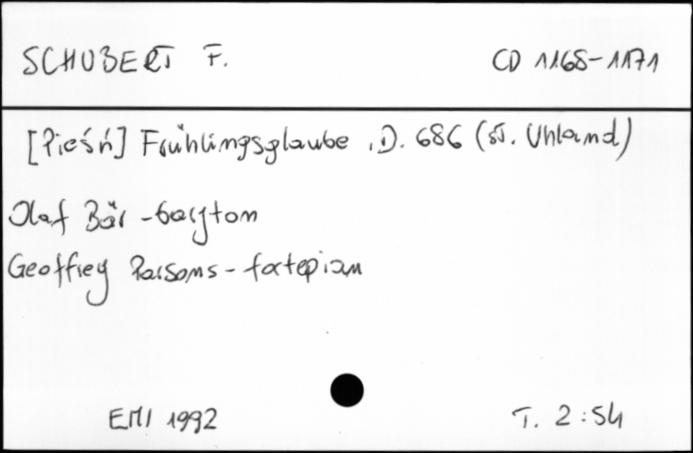 SCHUBERT F. CD 1168-1171
[Pieśń] Frühlingsglaube, D. 686 (sł. Uhland)
Olaf Bär - baryton
Geoffrey Parsons - fortepian
EMI 1992 T. 2:54